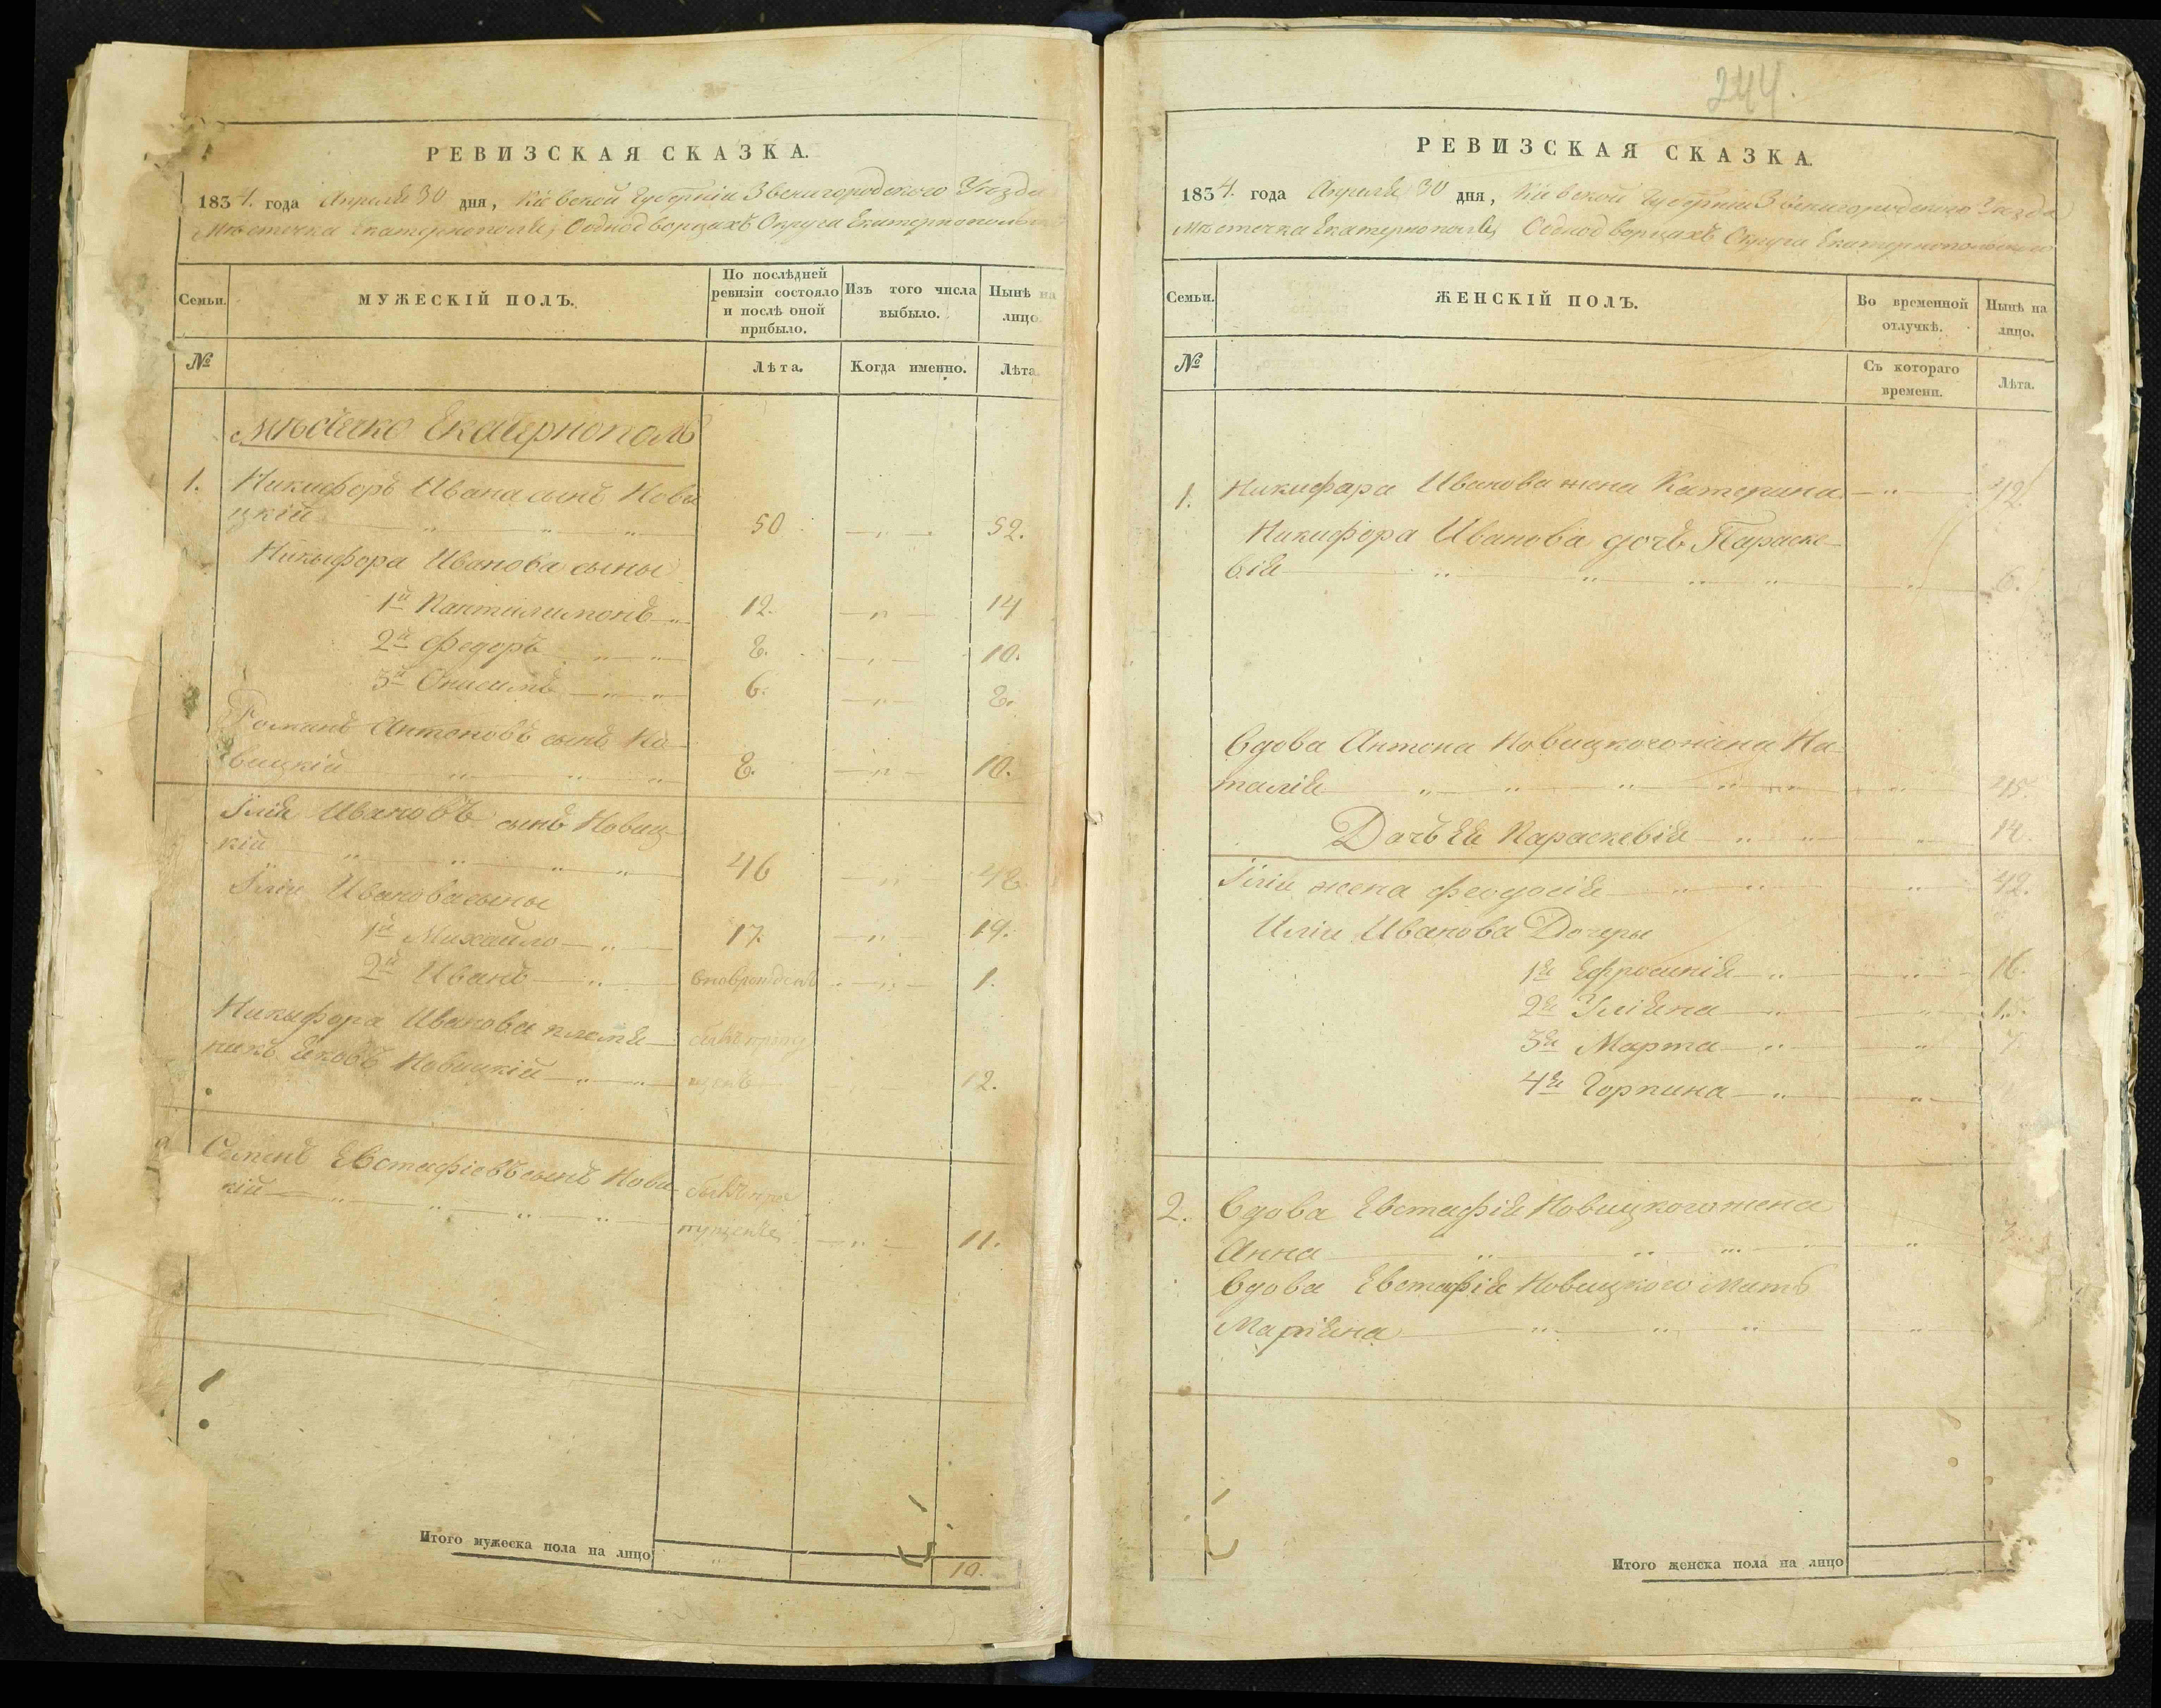 РЕВИЗСКАЯ СКАЗКА.
1834. года Апреля 30 дня, Кіевской Губерніи Звенигородского Уезда
Мѣстечка Екатеринополя, Однодворцахъ Округа Екатеринопольского
Семьи.
МУЖЕСКІЙ ПОЛЪ.
По послѣдней ревизіи состояло и послѣ оной прибыло.
Изъ того числа выбыло.
Нынѣ на лицо.
№
Лѣта.
Когда именно.
Лѣта.
Мѣстечко Екатеринополь
1. Никифоръ Ивана сынъ Нови
цкій 50 52.
Никифора Иванова сыны
1й Пантилимонъ 12. 14
2й Федоръ 8. 10.
3й Онисимъ 6. 8.
Романъ Антоновъ сынъ Но-
вицкій 8. 10.
Iлія Ивановъ сынъ Новиц-
кій 46 48.
Iліи Иванова сыны
1й Михайло 17. 19.
2й Иванъ вновьрожденъ 1.
Никифора Иванова племя- былъ пропу
никъ Яковъ Новицкій щенъ 12.
Семенъ Евстафіевъ сынъ Нови былъ про
кій пущенъ 11.
Итого мужеска пола на лицо 10.
244.
РЕВИЗСКАЯ СКАЗКА.
1834. года Апреля 30 дня, Кіевской Губерніи Звенигородского Уезда
Мѣстечка Екатеринополя, Однодворцахъ Округа Екатеринопольского
Семьи.
ЖЕНСКІЙ ПОЛЪ.
Во временной отлучкѣ.
Нынѣ на лицо.
№
Съ котораго времени.
Лѣта.
1. Никифора Иванова жена Катерина 42
Никифора Иванова дочь Параске-
вія 6.
Вдова Антона Новицкого жена На-
талія 45.
Дочь Ея Параскевія 14.
Iліи жена Феодосія 42.
Иліи Иванова Дочеры
1я Ефросинія 16.
2я Уліяна 15.
3я Марта 7
4я Горпина
2. Вдова Евстафія Новицкого жена
Анна
Вдова Евстафія Новицкого Мать
Маріяна
Итого женска пола на лицо